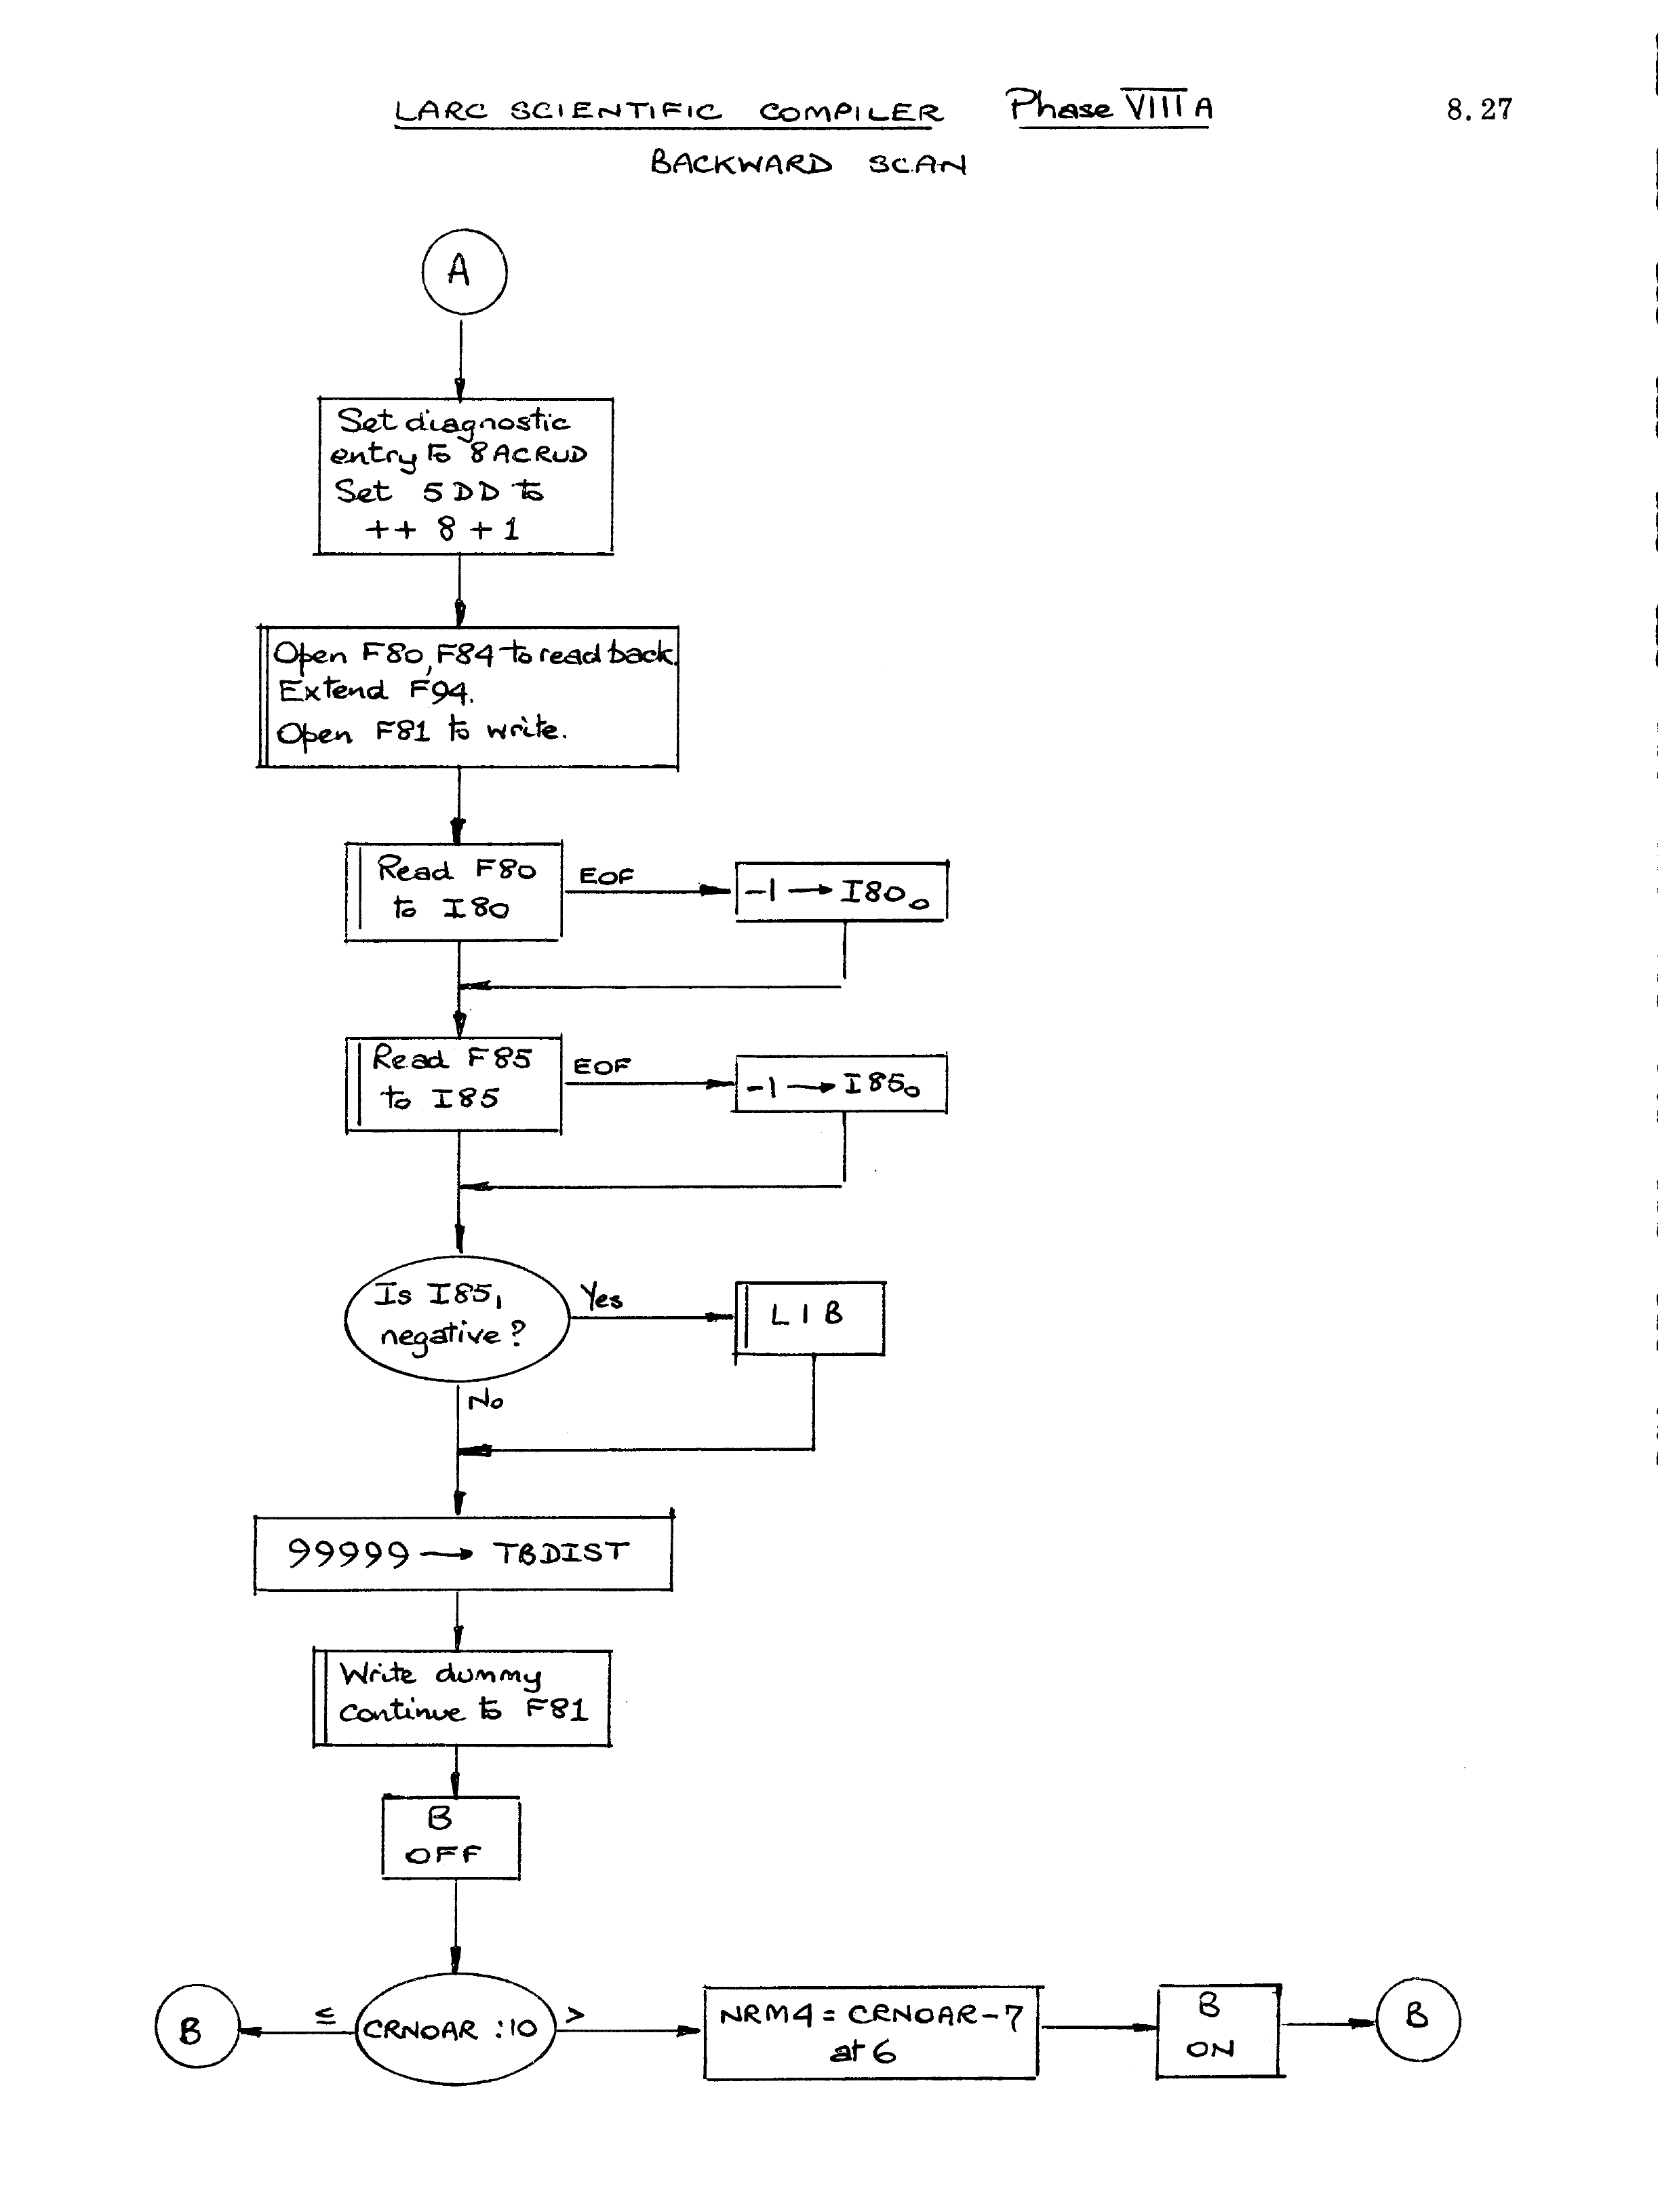 LARC SCIENTIFIC COMPILER Phase VIII A
8.27
BACKWARD SCAN
A
Set diagnostic
entry to 8ACRUD
Set 5DD to
++ 8 + 1
Open F80, F84 to read back.
Extend F94.
Open F81 to write.
Read F80
to I80
EOF
-1 → I80₀
Read F85
to I85
EOF
-1 → I85₀
Is I85₁
negative?
Yes
LIB
No
99999 → TBDIST
Write dummy
continue to F81
B
OFF
B
≤
CRNOAR :10
>
NRM4 = CRNOAR-7
at 6
B
ON
B